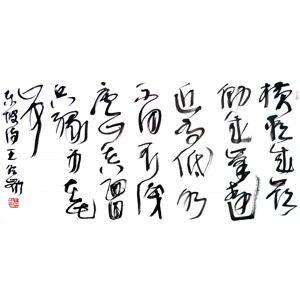 横看成岭
侧成峰远
近高低各
不同不识
庐山真面目
只缘身在此
山中
东坡诗王